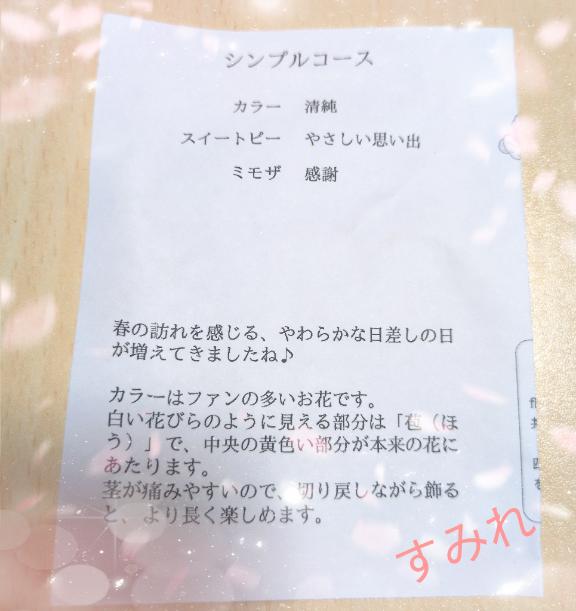 シンプルコース
カラー 清純
スイートピー やさしい思い出
ミモザ 感謝
春の訪れを感じる、やわらかな日差しの日
が増えてきましたね♪
カラーはファンの多いお花です。
白い花びらのように見える部分は「苞（ほ
う）」で、中央の黄色い部分が本来の花に
あたります。
茎が痛みやすいので、切り戻しながら飾る
と、より長く楽しめます。
すみれ